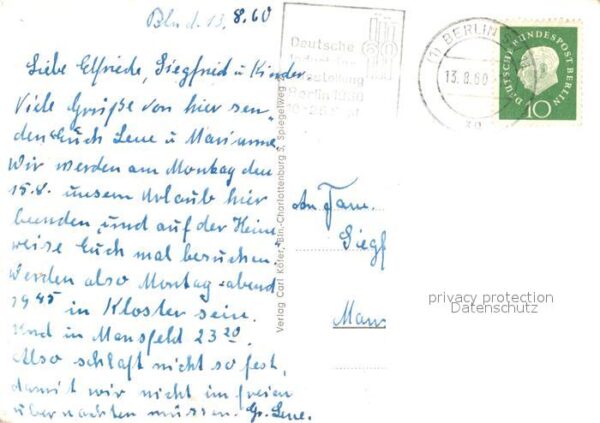 Bln d. 13.8.60
Liebe Elfriede, Siegfried u Kinder
Viele Grüße von hier sen-
den Euch Lene u Marianne
Wir werden am Montag den
15.8. unsern Urlaub hier
beenden, und auf der Heim
weise Euch mal besuchen.
Werden also Montag abend
19 45 in Kloster sein.
Und in Mansfeld 23 20.
Also schlaft nicht so fest,
damit wir nicht im freien
übernachten müssen. Gr. Lene.
Verlag Carl Köfer, Bln.-Charlottenburg 5, Spiegelweg
Deutsche
Berlin 1960
(1) BERLIN
13.8.60
DEUTSCHE BUNDESPOST BERLIN
10
An Fam.
Siegf
Man
privacy protection
Datenschutz